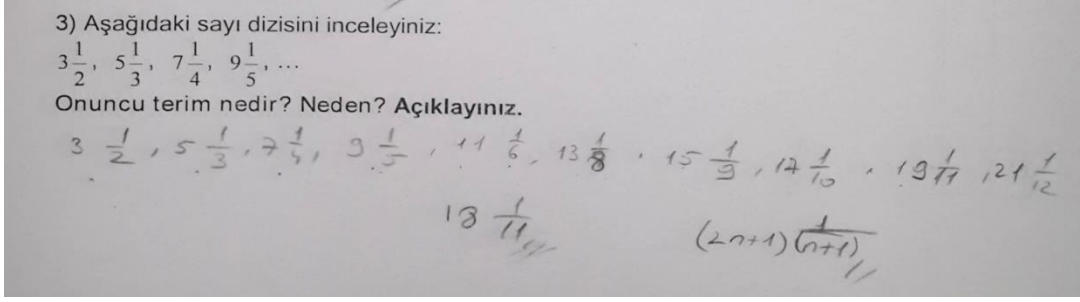 3) Aşağıdaki sayı dizisini inceleyiniz:
3 1/2, 5 1/3, 7 1/4, 9 1/5, ...
Onuncu terim nedir? Neden? Açıklayınız.
3 1/2, 5 1/3, 7 1/4, 9 1/5, 11 1/6, 13 1/8, 15 1/9, 17 1/10, 19 1/11, 21 1/12
18 1/11 (2n+1) 1/(n+1)